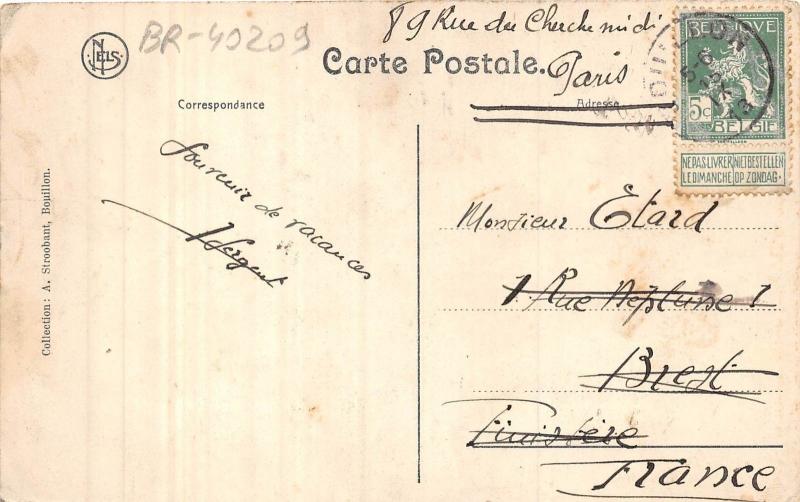 BR-40209
89 Rue du Cherche midi
Paris
NELS
Carte Postale.
Correspondance
Adresse
BELGIQUE
5c
BELGIË
NE PAS LIVRER NIET BESTELLEN
LE DIMANCHE OP ZONDAG
Souvenir de vacances
Monsieur Etard
1 Rue Neptune 1
Brest
Finistère
France
Collection: A. Stroobant, Bouillon.